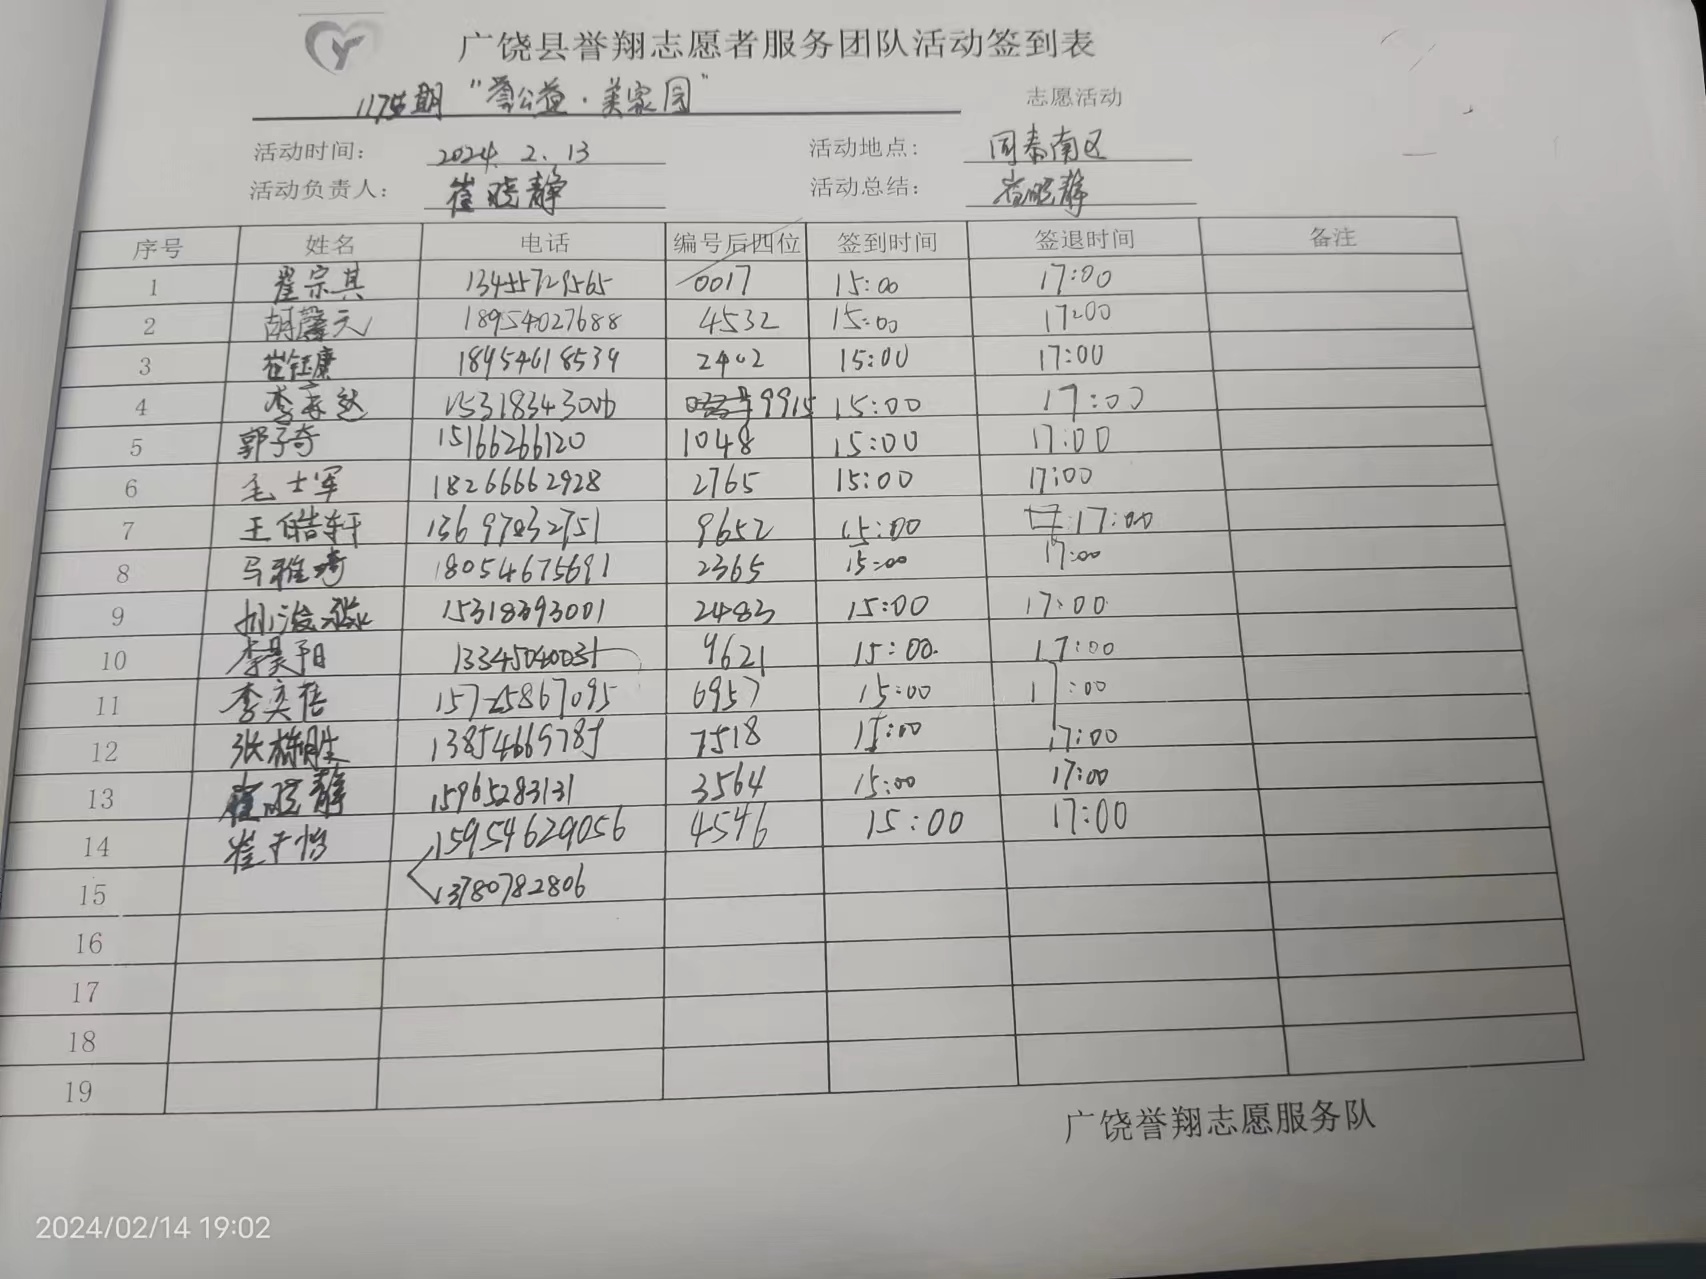 广饶县誉翔志愿者服务团队活动签到表
1175期 "誉公益·美家园" 志愿活动
活动时间: 2024.2.13 活动地点: 同泰南区
活动负责人: 崔晓静 活动总结: 崔晓静
序号 姓名 电话 编号后四位 签到时间 签退时间 备注
1 翟宗其 13455729565 0017 15:00 17:00
2 胡馨元 18954027688 4532 15:00 17:00
3 崔钰康 18954618539 2402 15:00 17:00
4 李 9915 15:00 17:00
5 郭子奇 15166266120 1048 15:00 17:00
6 毛士军 18266662928 2765 15:00 17:00
7 王皓轩 13697832751 9652 15:00 17:00
8 马雅琦 18054675691 2365 15:00 17:00
9 15318393001 2483 15:00 17:00
10 李昊阳 13345040035 9621 15:00 17:00
11 李奕 15725867095 6957 15:00 17:00
12 张栋胜 13854669785 7518 15:00 17:00
13 崔晓静 15965283131 3564 15:00 17:00
14 崔子怡 15954629056 4546 15:00 17:00
15 13780782806
16
17
18
19
广饶誉翔志愿服务队
2024/02/14 19:02